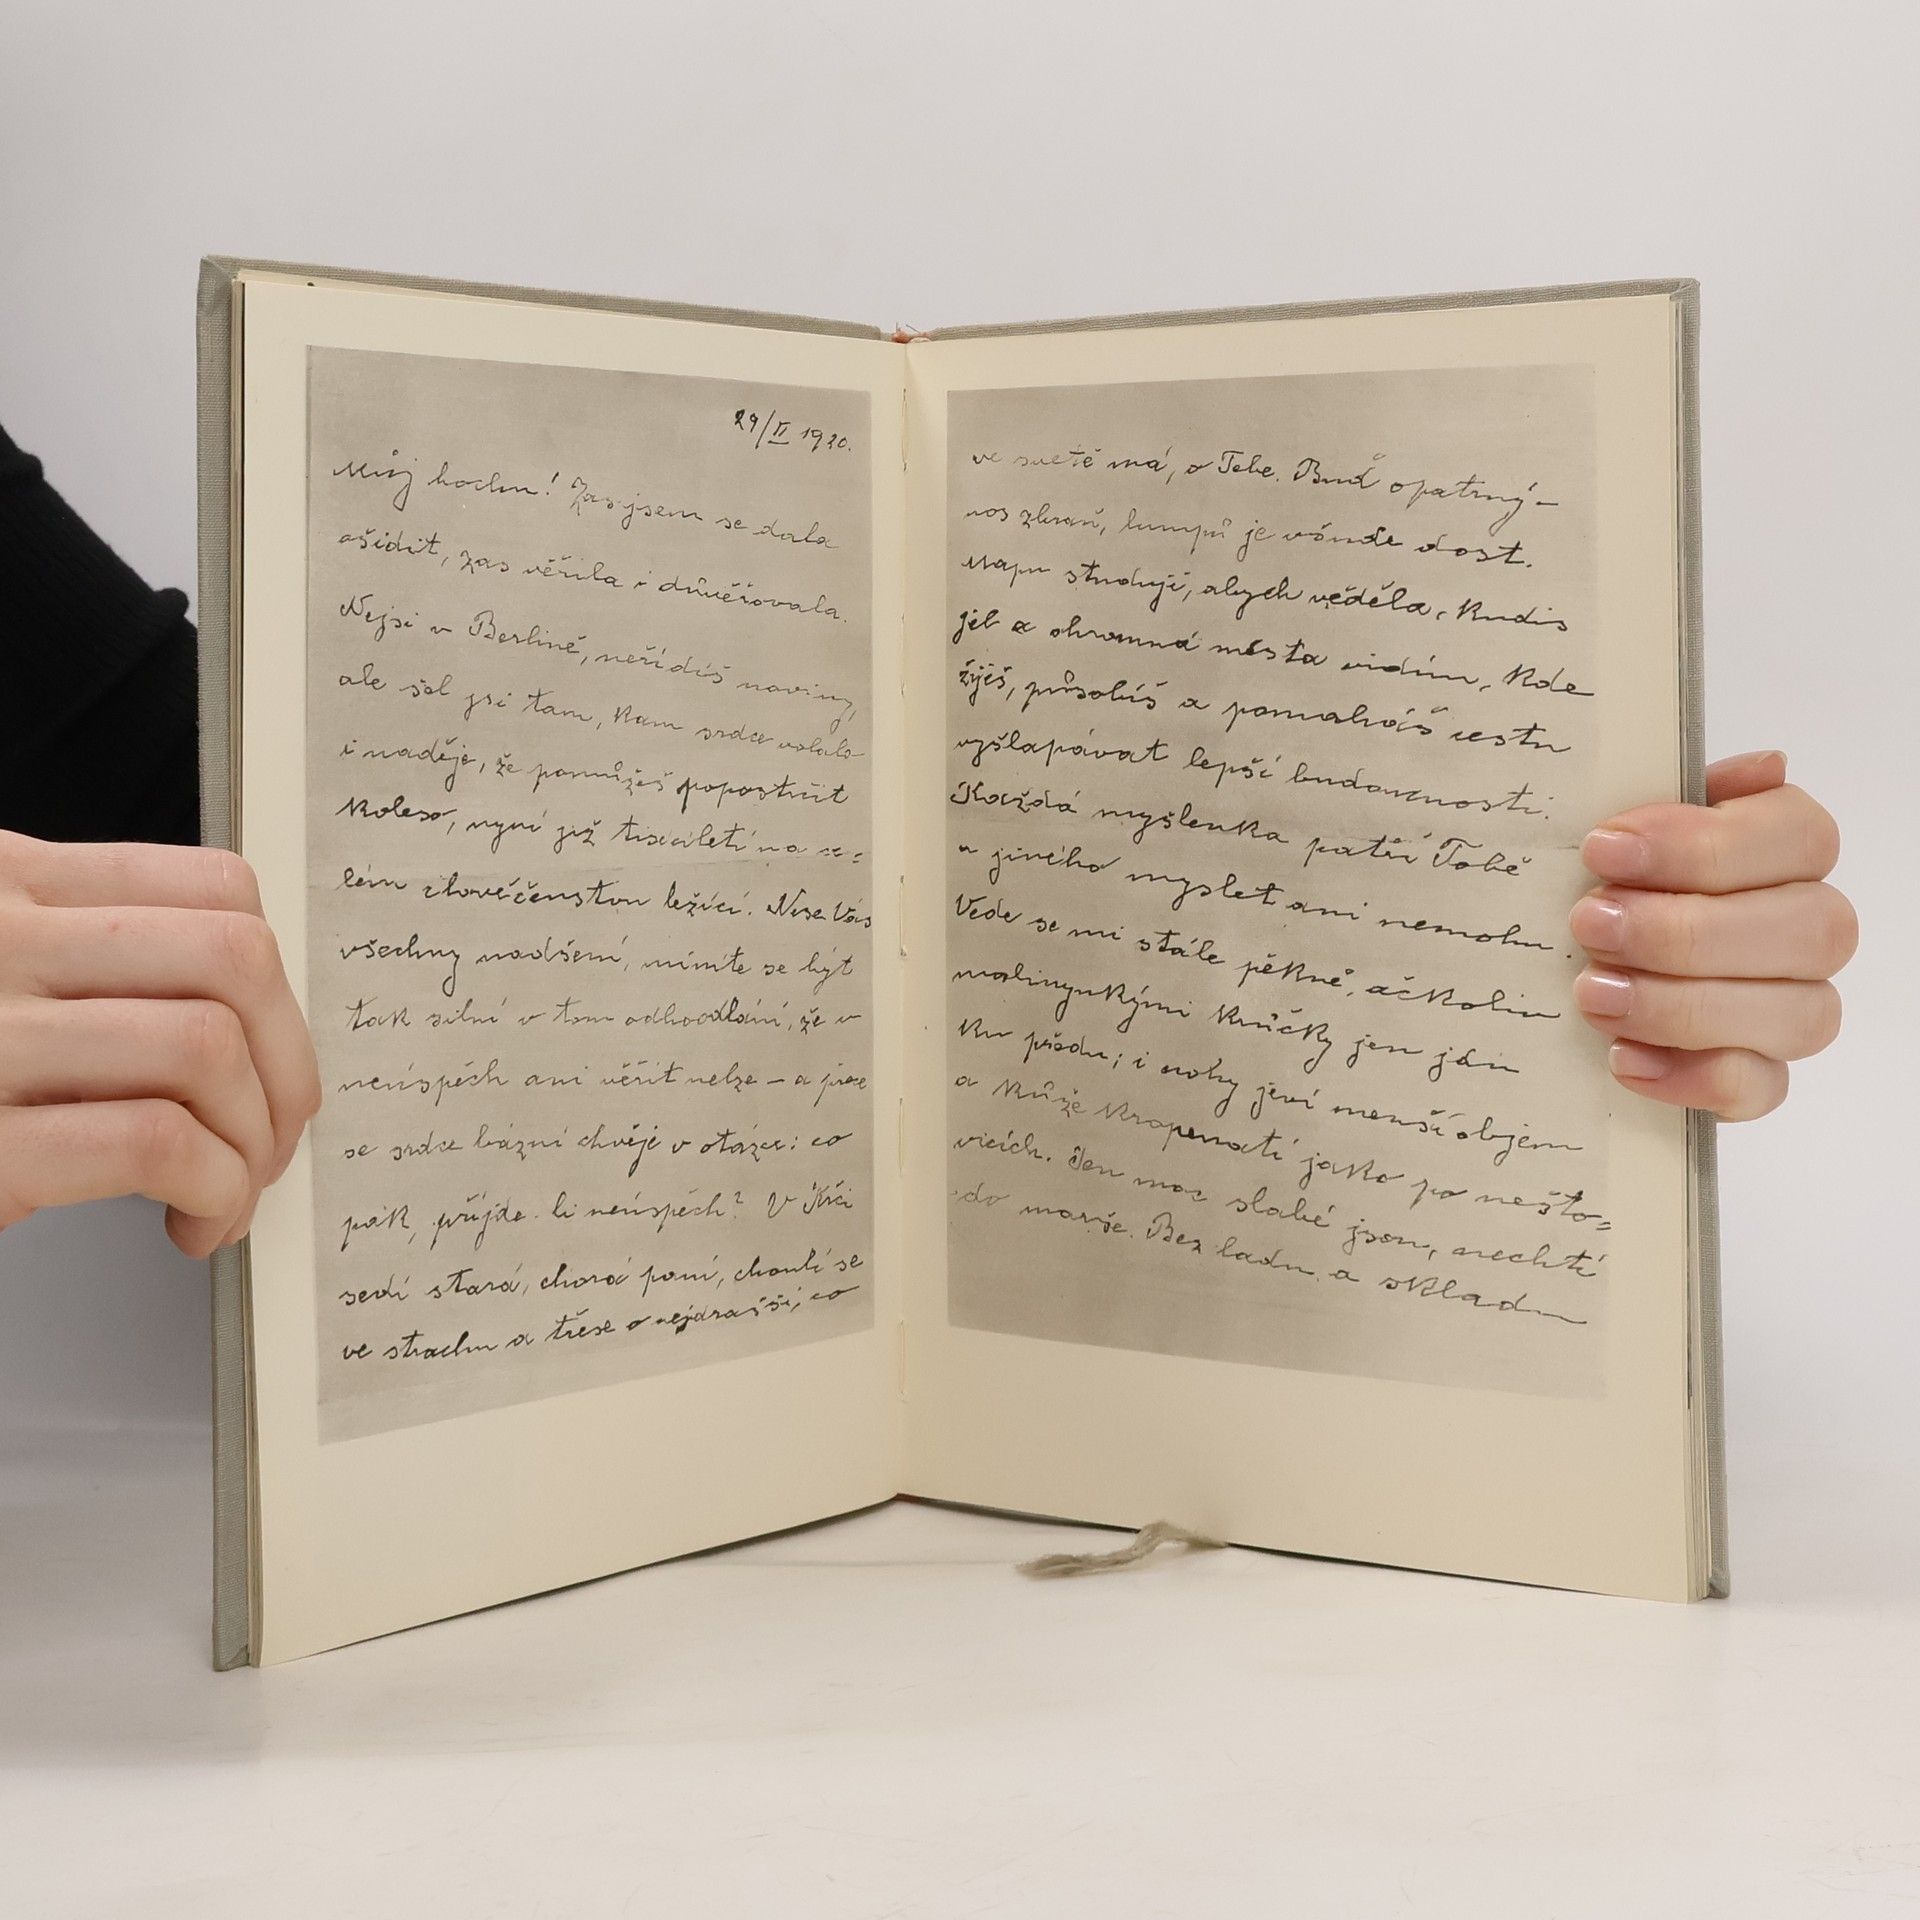 29/II 1920.
Můj hochu! Zas jsem se dala
ošidit, zas věřila i důvěřovala.
Nejsi v Berlině, neřídíš noviny,
ale šel jsi tam, kam srdce volalo
i naděje, že pomůžeš popostrčit
koleso, nyní již tisíciletí na ce=
lém človečenstvu ležící. Nese Vás
všechny nadšení, míníte se být
tak silní v tom odhodlání, že v
neúspěch ani věřit nelze – a přece
se srdce bázní chvěje v otázce: co
pak, přijde-li neúspěch? V Krči
sedí stará, chorá paní, choulí se
ve strachu a třese o nejdražší, co
ve světě má, o Tebe. Buď opatrný –
nos zbraň, lumpů je všude dost.
Mapu studuji, abych věděla, kudis
jel a ohromná města vidím, kde
žiješ, působíš a pomaháš cestu
vyšlapávat lepší budoucnosti.
Každá myšlenka patří Tobě
a jiného myslet ani nemohu.
Vede se mi stále pěkně, ačkoliv
malinynkými krůčky jen jdu
ku předu; i nohy jeví menší objem
a kůže kropenatí jako po nešto=
vicích. Jen moc slabé jsou, nechtí
do marše. Bez ladu a skladu